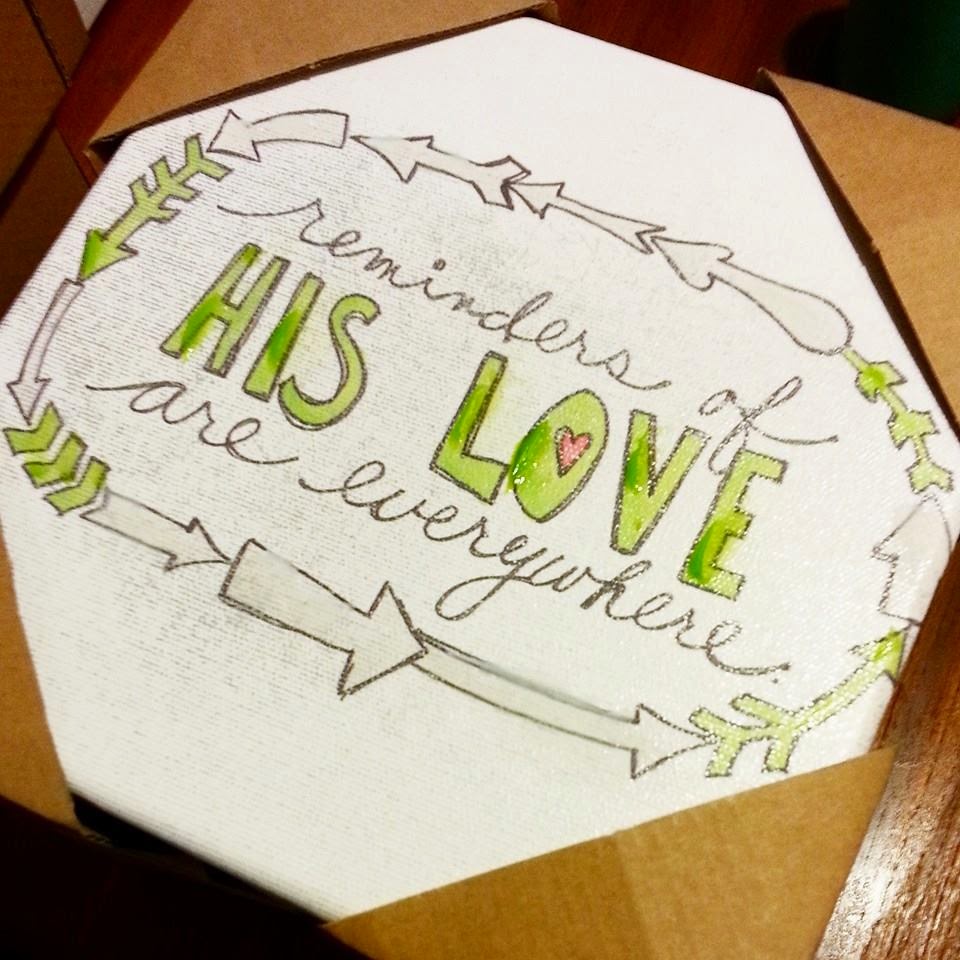 reminders of
HIS LOVE
are everywhere.